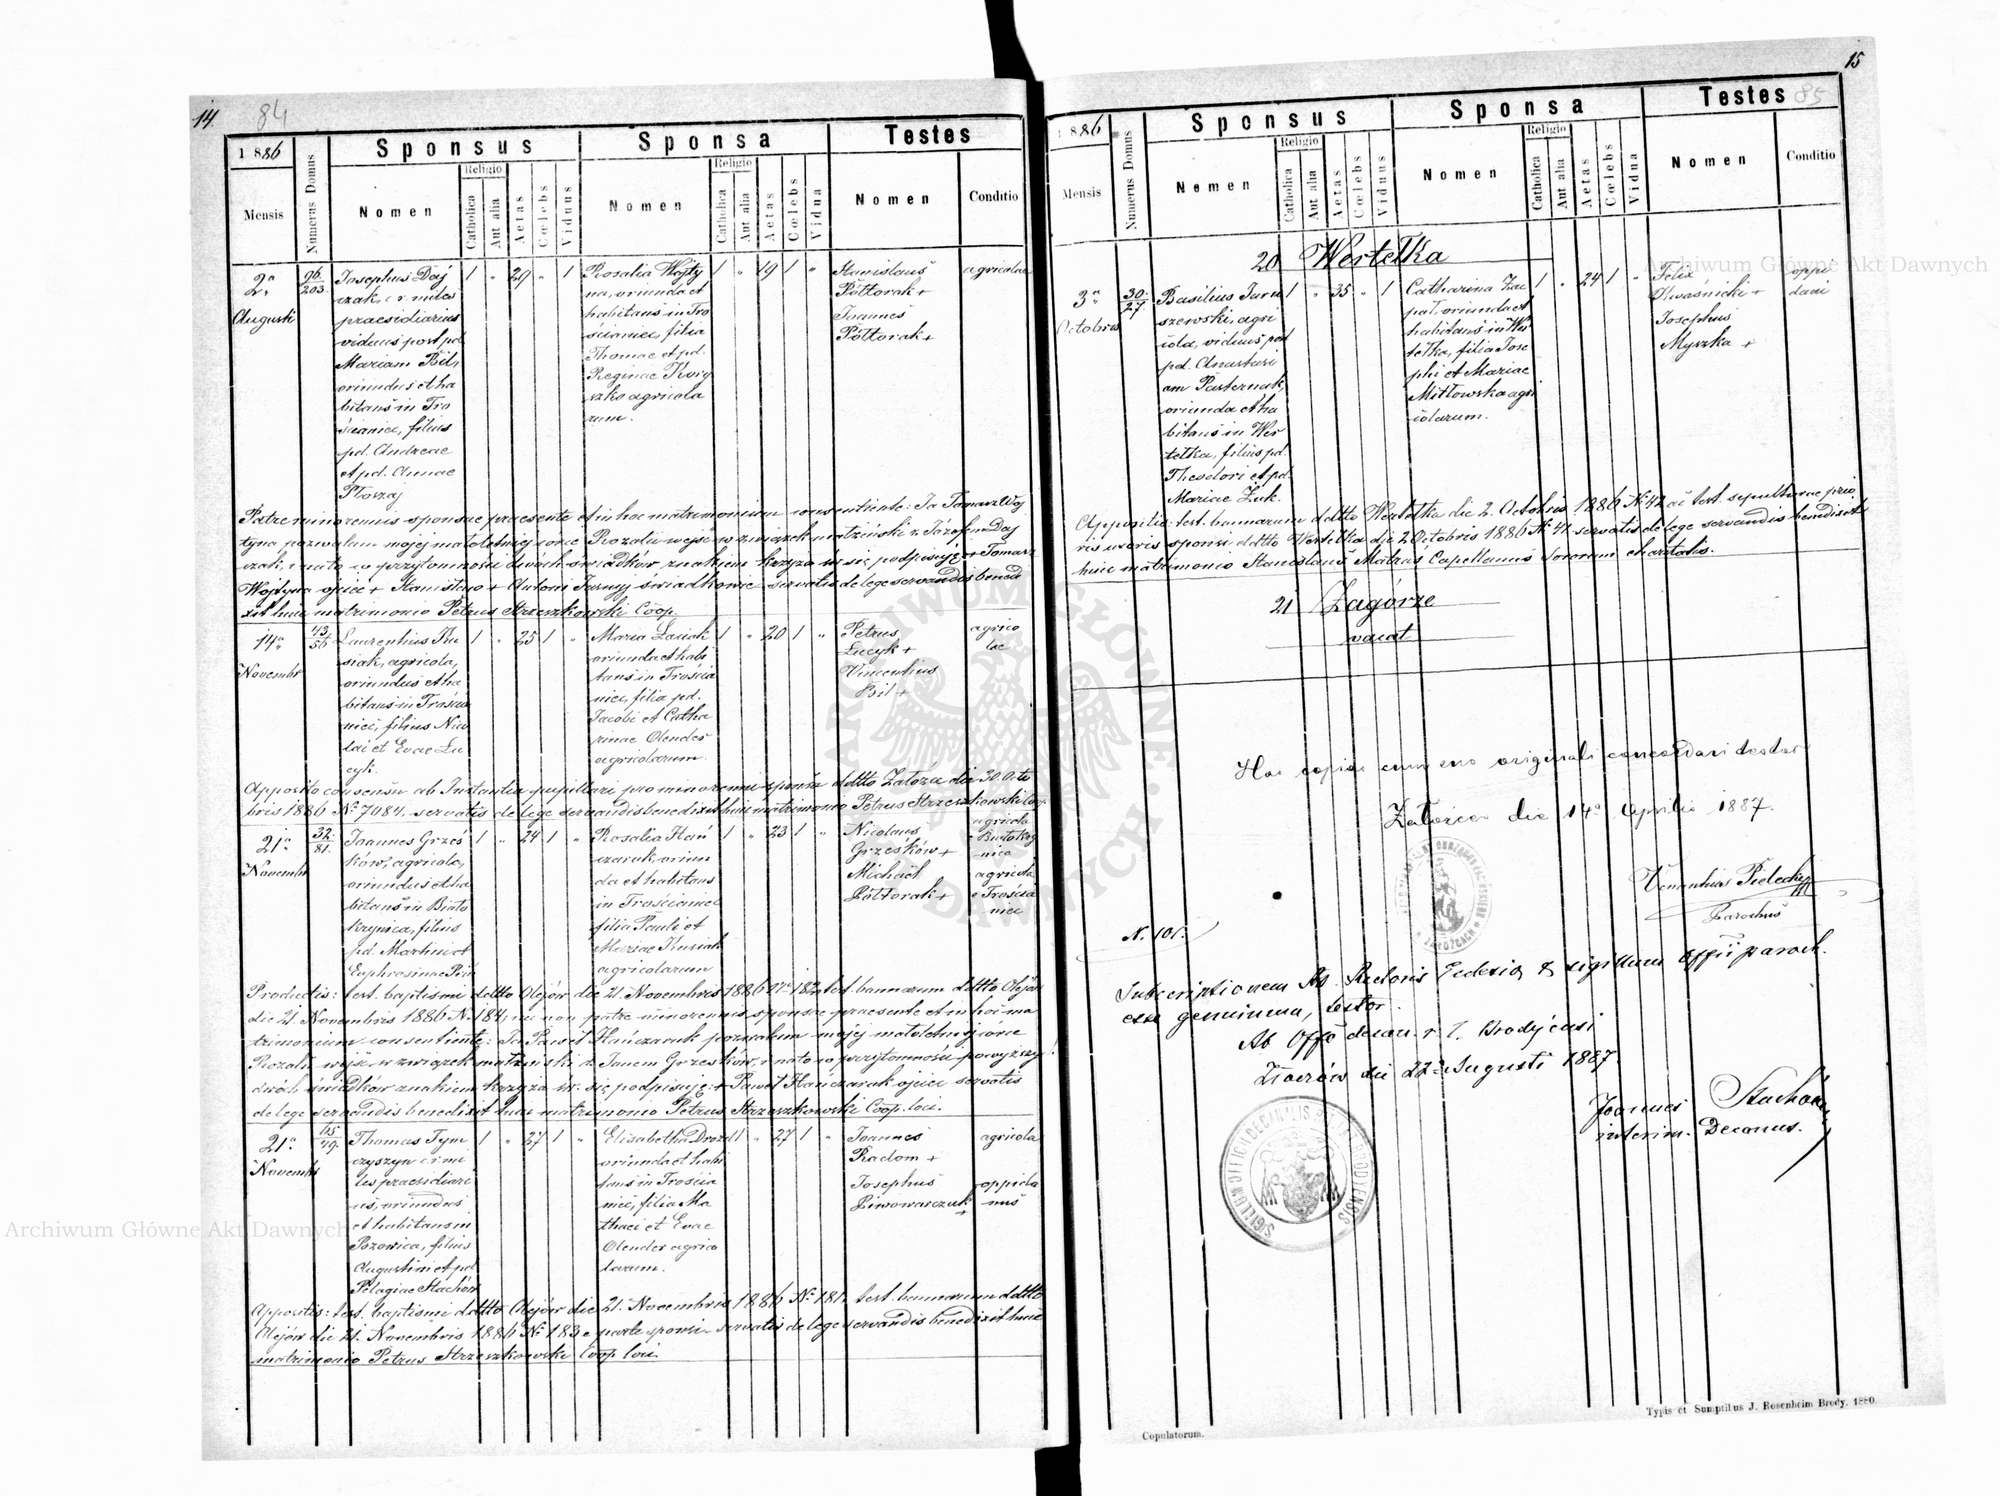 14.
84
1886
Mensis
Numerus Domus
Sponsus
Nomen
Religio
Catholica
Aut alia
Aetas
Cœlebs
Viduus
Sponsa
Nomen
Religio
Catholica
Aut alia
Aetas
Cœlebs
Vidua
Testes
Nomen
Conditio
2a
Augusti
96
203.
Josephus Daj
czak, c. r. miles
praesidiarius
viduus post pd.
Mariam Bil,
oriundus et ha
bitans in Tro
ścianiec, filius
pd. Andreae
et pd. Annae
Ptoszaj
1 " 29 " 1
Rosalia Wojty
na, oriunda et
habitans in Tro
ścianiec, filia
Thomae et pd.
Reginae
agricola
rum.
1 " 19 1 "
Stanislaus
Półtorak +
Joannes
Półtorak +
agricolae
Patre minorennis sponsae praesente et in hoc matrimonium consentiente: Ja Tomasz Woj
tyna pozwalam mojej małoletniej córce Rozalii wejść w związek małżeński z Józefem Daj
czak, i na to w przytomności dwóch świadków znakiem krzyża św. się podpisuję + Tomasz
Wojtyna ojciec + Stanisław + Antoni świadkowie servatis de lege servandis bened
ixit huic matrimonio Petrus Strzeszkowski Coop.
14a
Novembr
43
56
Laurentius Ku
siak, agricola,
oriundus et ha
bitans in Trościa
niec, filius Nico
lai et Evae Lu
cyk.
1 " 25 1 "
Maria Laciak
oriunda et habi
tans in Trościa
niec, filia pd.
Jacobi et Catha
rinae Olender
agricolarum.
1 " 20 1 "
Petrus
Lucyk +
Vincentius
Bil +
agrico
lae
Apposito consensu ab Instantia pupillari pro minorenni sponsa ddtto Załoźce die 30. Octo
bris 1886 No 7084. servatis de lege servandis benedixit huic matrimonio Petrus Strzeszkowski Coop.
21a
Novembr
32.
81.
Joannes Grześ
ków, agricola,
oriundus et ha
bitans in Biało
krynica, filius
pd. Martini et
Euphrosinae
1 " 24 1 "
Rosalia Hań
czaruk, oriun
da et habitans
in Trościaniec
filia Pauli et
Mariae Kusiak
agricolarum
1 " 23 1 "
Nicolaus
Grześków +
Michael
Półtorak +
agricola
e Białokry
nica
agricola
e Trościa
niec
Productis: test. baptismi ddtto Olejów die 21. Novembris 1886 No 182 test. bannorum ddtto Olejów
die 21. Novembris 1886 No 184, nec non patre minorennis sponsae praesente et in hoc ma
trimonium consentiente: Ja Paweł Hańczaruk pozwalam mojej małoletniej córce
Rozalii wejść w związek małżeński z Janem Grześków, i na to w przytomności powyższych
dwóch świadków znakiem krzyża św. się podpisuję: + Paweł Hańczaruk ojciec servatis
de lege servandis benedixit huic matrimonio Petrus Strzeszkowski Coop. loci.
21a
Novembr
115
79.
Thomas Tym
czyszyn c. r. mi
les praesidiari
us, oriundus
et habitans in
filius
Augustini et pd.
Pelagiae Stachów
1 " 27 1 "
Elisabetha Drozd
oriunda et habi
tans in Trościa
niec, filia Ma
thaei et Evae
Olender agrico
larum.
1 " 27 1 "
Joannes
Radom +
Josephus
Piwowarczuk
+
agricola
oppida
nus
Appositis: test. baptismi ddtto Olejów die 21. Novembris 1886 No 181. test. bannorum ddtto
Olejów die 21. Novembris 1886 No 183 e parte sponsi servatis de lege servandis benedixit huic
matrimonio Petrus Strzeszkowski Coop. loci.
15
85
1886
Mensis
Numerus Domus
Sponsus
Nomen
Religio
Catholica
Aut alia
Aetas
Cœlebs
Viduus
Sponsa
Nomen
Religio
Catholica
Aut alia
Aetas
Cœlebs
Vidua
Testes
Nomen
Conditio
20 Wertełka
3a
Octobris
30
27.
Basilius Jaru
szewski, agri
cola, viduus post
pd. Anastasi
am Pasternak,
oriundus et ha
bitans in Wer
tełka, filius pd.
Theodori et pd.
Mariae Żuk.
1 " 35 " 1
Catharina Za
pał, oriunda et
habitans in Wer
tełka, filia Jose
phi et Mariae
Mitłowska agri
colarum.
1 " 24 1 "
Felix
Kwaśnicki +
Josephus
Myszka +
oppi
dani
Appositis: test. bannorum ddtto Wertełka die 2. Octobris 1886 No 42 ac test. sepulturae prio
ris uxoris sponsi ddtto Wertełka die 2 Octobris 1886 No 41. servatis de lege servandis benedixit
huic matrimonio Stanislaus Matras Capellanus Sororum charitatis.
21 Zagórze
vacat
Has copias cum suo originali concordari testor
Załoźce die 14a Aprilis 1887.
Venantius Pielecki
Parochus
N. 101.
Subscriptionem Rectoris Ecclesiae & sigillum Offii paroch.
esse genuinum, testor.
Ab Offo decan. r. l. Brodycensi
die 22a Augusti 1887.
Joannes Stachów
interim. Decanus.
SIGILLUM OFFICII DECANALIS R. L. BRODENSIS
Copulatorum.
Typis et Sumptibus J. Rosenheim Brody, 1880.
Archiwum Główne Akt Dawnych
Archiwum Główne Akt Dawnych
ARCHIWUM GŁÓWNE AKT DAWNYCH